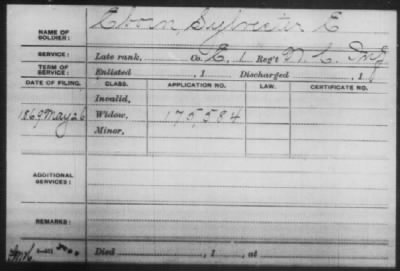 NAME OF SOLDIER: Eborn, Sylvester E
SERVICE: Late rank, Co. E, 1 Reg't N. C. Inf
TERM OF SERVICE: Enlisted , 1 Discharged , 1
DATE OF FILING. CLASS. APPLICATION NO. LAW. CERTIFICATE NO.
Invalid,
1869 May 26 Widow, 175,584
Minor,
ADDITIONAL SERVICES:
REMARKS:
Died , 1 , at